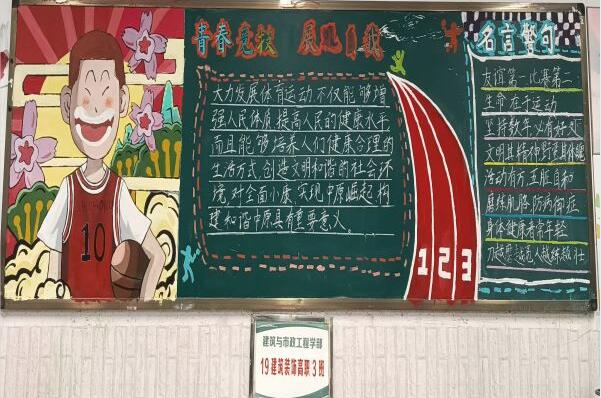 青春竞技 展现自我
大力发展体育运动不仅能够增
强人民体质提高人民的健康水平
而且能够培养人们健康合理的
生活方式,创造文明和谐的社会环
境,对全面小康,实现中原崛起,构
建和谐中原具有重要意义。
1 2 3
10
名言警句
友谊第一比赛第二
生命在于运动
坚持数年必有好处
文明其精神野蛮其体魄
活动有方五脏自和
磨练肌胳防病御症
身体健康者常年轻
刀越磨越亮人越练越壮
建筑与市政工程学部
19建筑装饰高职3班